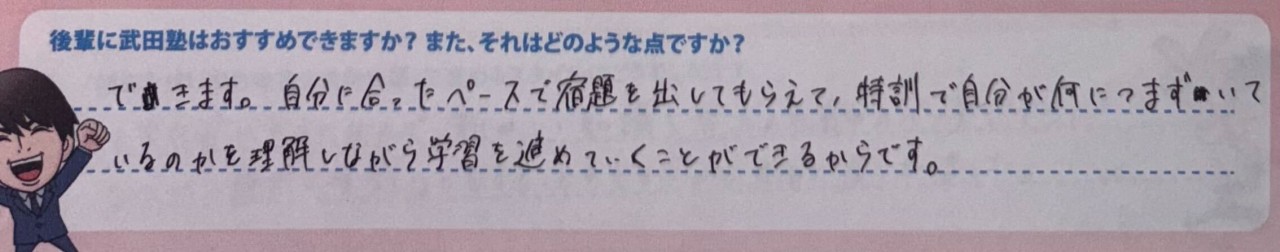 後輩に武田塾はおすすめできますか? また、それはどのような点ですか?
できます。自分に合ったペースで宿題を出してもらえて、特訓で自分が何につまずいて
いるのかを理解しながら学習を進めていくことができるからです。